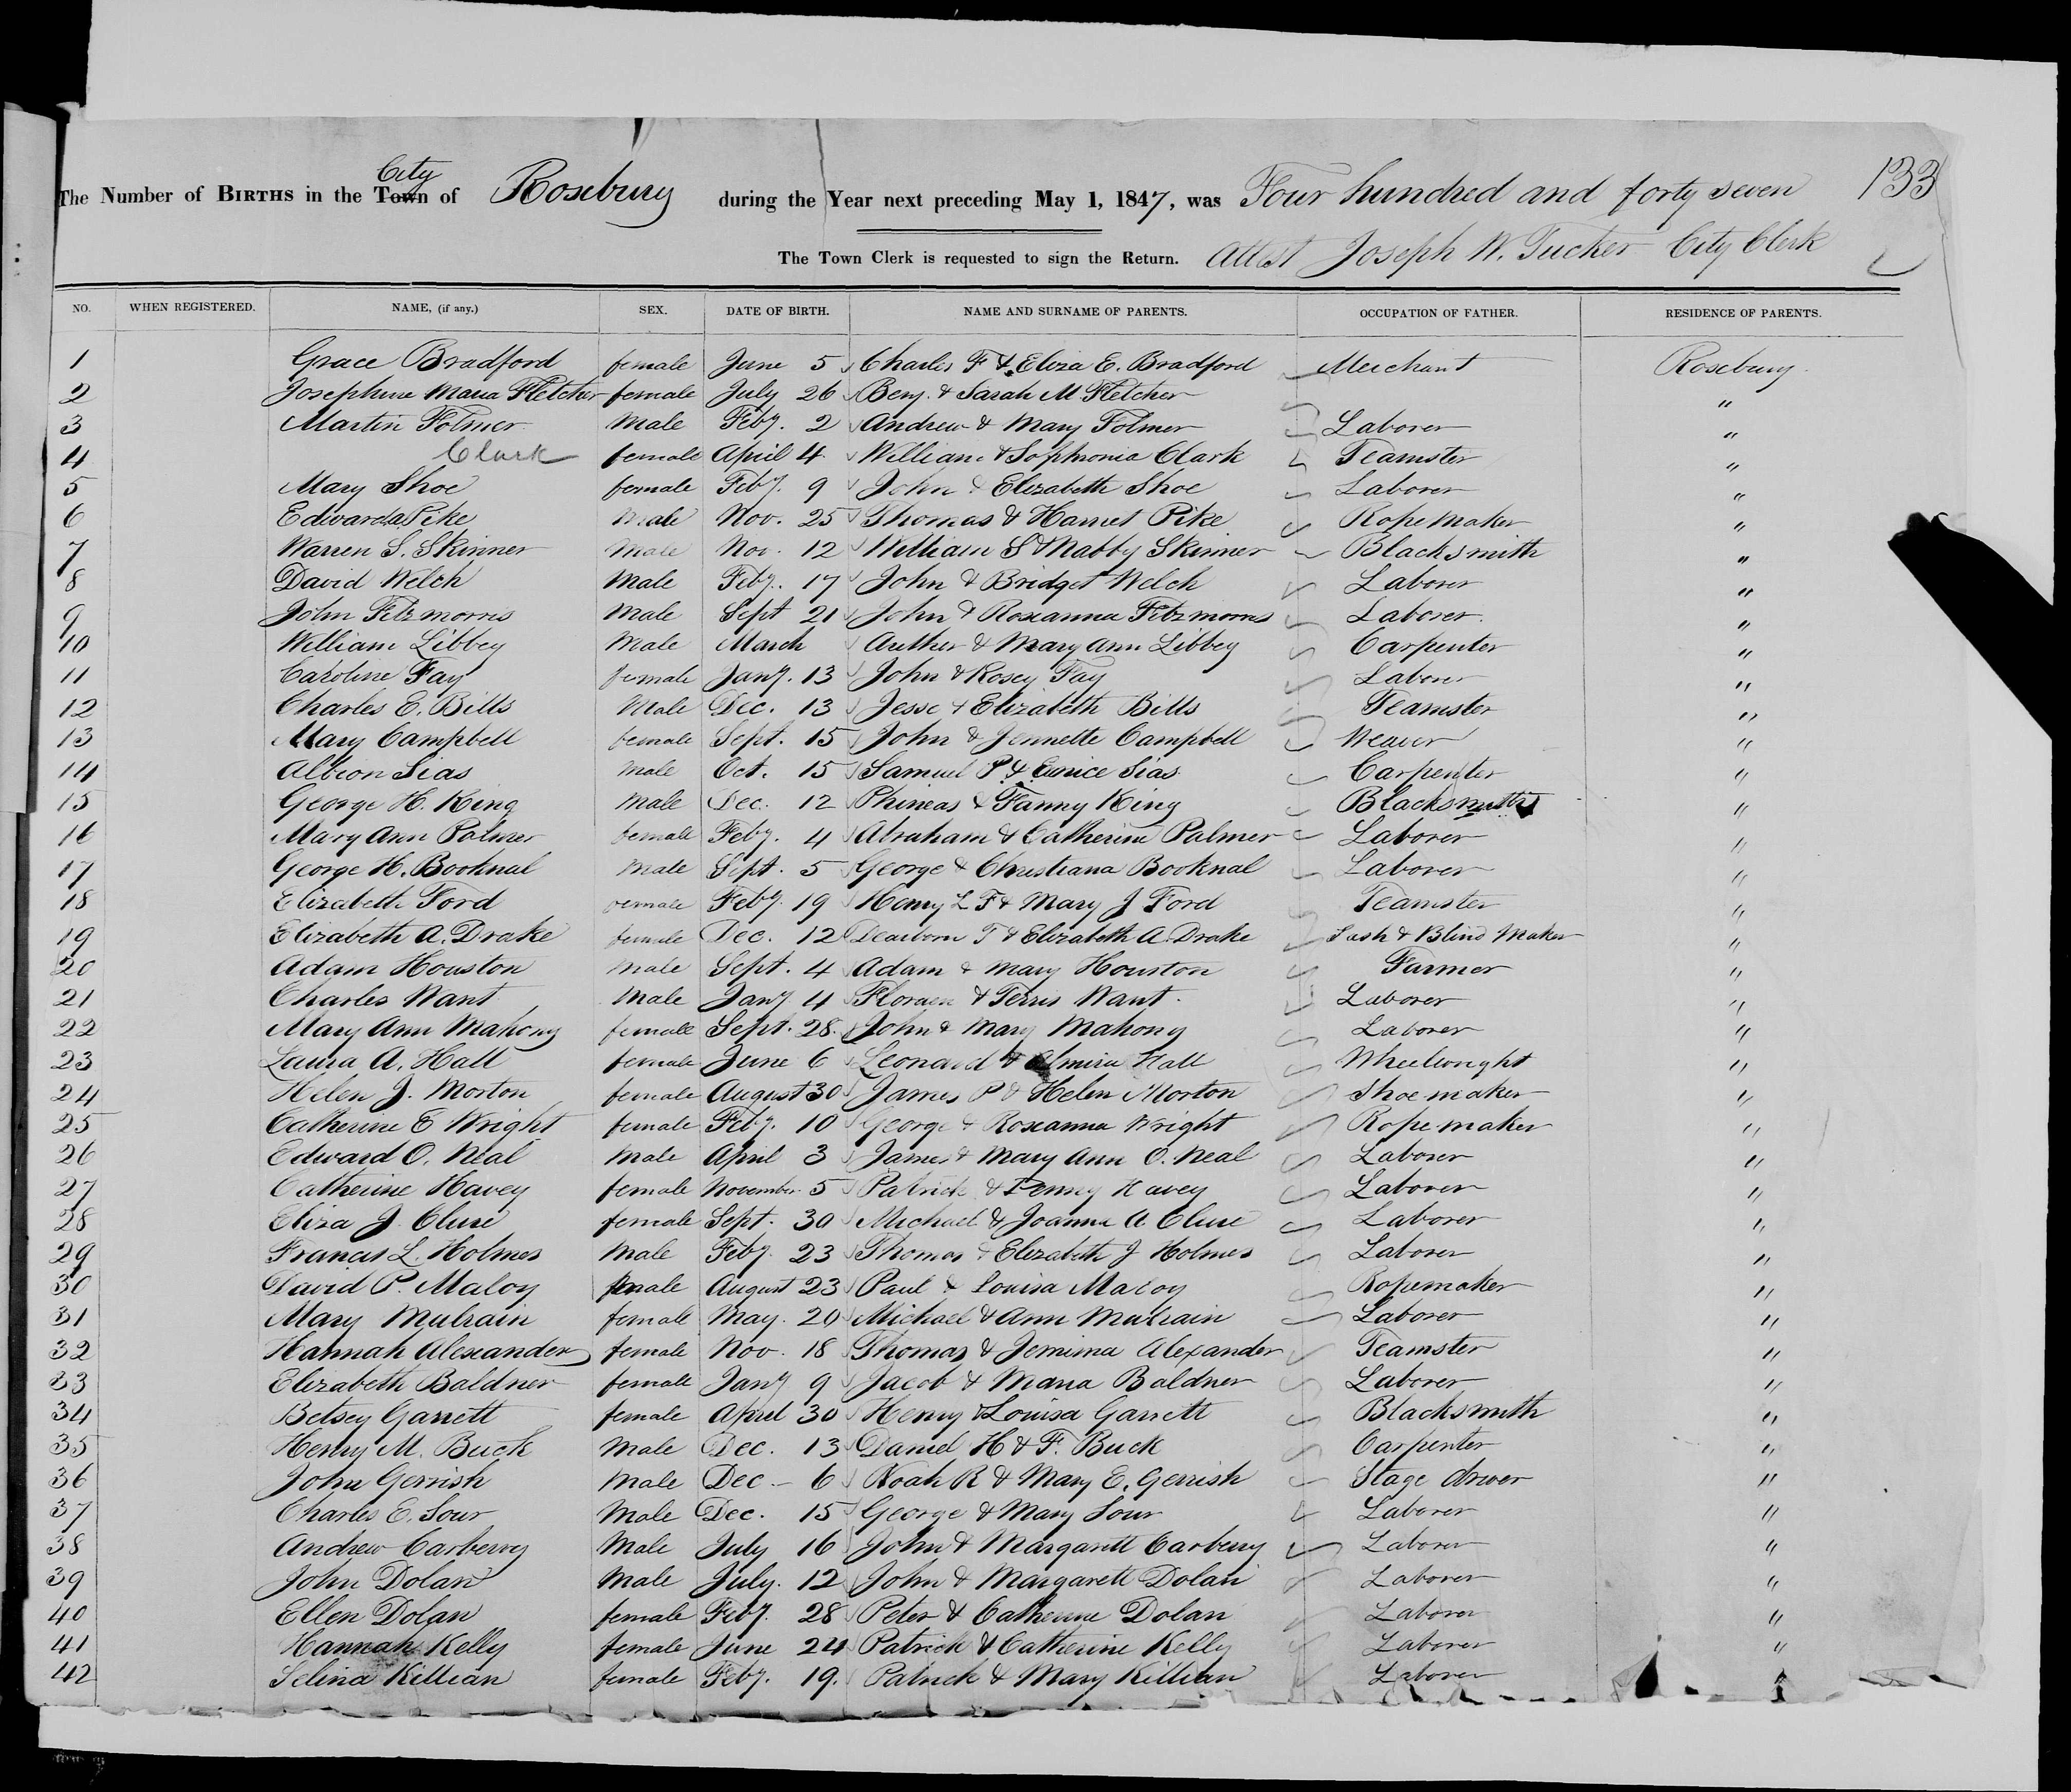 133
City
The Number of BIRTHS in the Town of Roxbury during the Year next preceding May 1, 1847, was Four hundred and forty seven
The Town Clerk is requested to sign the Return. Attest Joseph W. Tucker City Clerk
NO. WHEN REGISTERED. NAME, (if any.) SEX. DATE OF BIRTH. NAME AND SURNAME OF PARENTS. OCCUPATION OF FATHER. RESIDENCE OF PARENTS.
1 Grace Bradford female June 5 Charles F & Eliza E. Bradford Merchant Roxbury
2 Josephine Maria Fletcher female July 26 Benj. & Sarah M Fletcher "
3 Martin Folmer Male Feby. 2 Andrew & Mary Folmer Laborer "
4 Clark female April 4 William & Sophronia Clark Teamster "
5 Mary Shoe female Feby. 9 John & Elizabeth Shoe Laborer "
6 Edward Pike Male Nov. 25 Thomas & Harriet Pike Rope maker "
7 Warren S. Skinner Male Nov. 12 William S & Nabby Skinner Blacksmith "
8 David Welch Male Feby. 17 John & Bridget Welch Laborer "
9 John Fitzmorris Male Sept 21 John & Roxanna Fitzmorris Laborer "
10 William Libbey Male March Auther & Mary Ann Libbey Carpenter "
11 Caroline Fay female Jany. 13 John & Rosey Fay Laborer "
12 Charles E. Bills Male Dec. 13 Jesse & Elizabeth Bills Teamster "
13 Mary Campbell female Sept. 15 John & Jennette Campbell Weaver "
14 Albion Sias Male Oct. 15 Samuel P. & Eunice Sias Carpenter "
15 George H. King Male Dec. 12 Phineas & Fanny King Blacksmith "
16 Mary Ann Palmer female Feby. 4 Abraham & Catherine Palmer Laborer "
17 George H. Booknal Male Sept. 5 George & Christiana Booknal Laborer "
18 Elizabeth Ford female Feby. 19 Henry L F & Mary J Ford Teamster "
19 Elizabeth A. Drake female Dec. 12 Dearborn T & Elizabeth A. Drake Sash & Blind Maker "
20 Adam Houston Male Sept. 4 Adam & Mary Houston Farmer "
21 Charles Want Male Jany 4 & Want Laborer "
22 Mary Ann Mahony female Sept. 28. John & Mary Mahony Laborer "
23 Laura A. Hall female June 6 Leonard & Almira Hall Wheelwright "
24 Helen J. Morton female August 30 James P & Helen Morton Shoemaker "
25 Catherine E Wright female Feby. 10 George & Roxanna Wright Rope maker "
26 Edward O. Neal Male April 3 James & Mary Ann O. Neal Laborer "
27 Catherine Havey female November 5 Patrick & Penny Havey Laborer "
28 Eliza J. Cluse female Sept. 30 Michael & Joanna A. Cluse Laborer "
29 Francis L. Holmes Male Feby. 23 Thomas & Elizabeth J Holmes Laborer "
30 David P. Maloy male August 23 Paul & Louisa Maloy Ropemaker "
31 Mary Mulrain female May. 20 Michael & Ann Mulrain Laborer "
32 Hannah Alexander female Nov. 18 Thomas & Jemima Alexander Teamster "
33 Elizabeth Baldner female Jany 9 Jacob & Maria Baldner Laborer "
34 Betsey Garrett female April 30 Henry & Louisa Garrett Blacksmith "
35 Henry M. Buck Male Dec. 13 Daniel H & F. Buck Carpenter "
36 John Gerrish Male Dec - 6 Noah R & Mary E. Gerrish Stage driver "
37 Charles E. Sour Male Dec. 15 George & Mary Sour Laborer "
38 Andrew Carberry Male July 16 John & Margarett Carberry Laborer "
39 John Dolan Male July. 12 John & Margarett Dolan Laborer "
40 Ellen Dolan female Feby. 28 Peter & Catherine Dolan Laborer "
41 Hannah Kelly female June 24 Patrick & Catherine Kelly Laborer "
42 Selina Killian female Feby. 19. Patrick & Mary Killian Laborer "